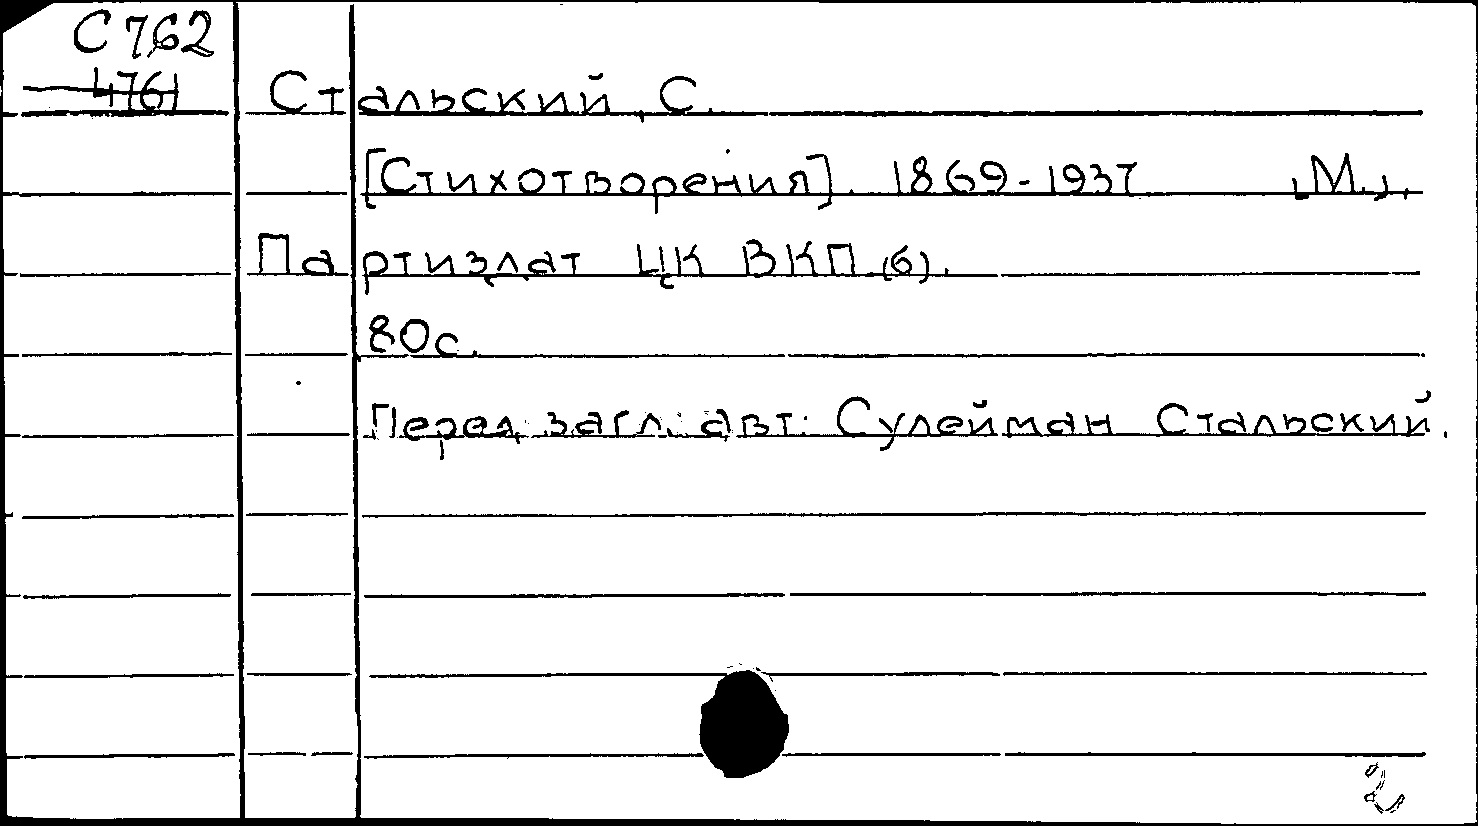 С 762
4761
Стальский, С.
[Стихотворения]. 1869-1937 [М.],
Партиздат ЦК ВКП(б).
80с.
Перед загл. авт: Сулейман Стальский.
2